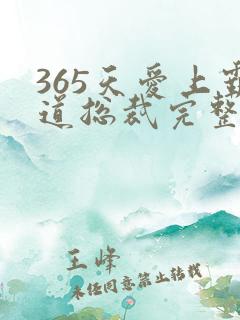 365天爱上霸
道总裁完整
王峰
未经同意禁止转载